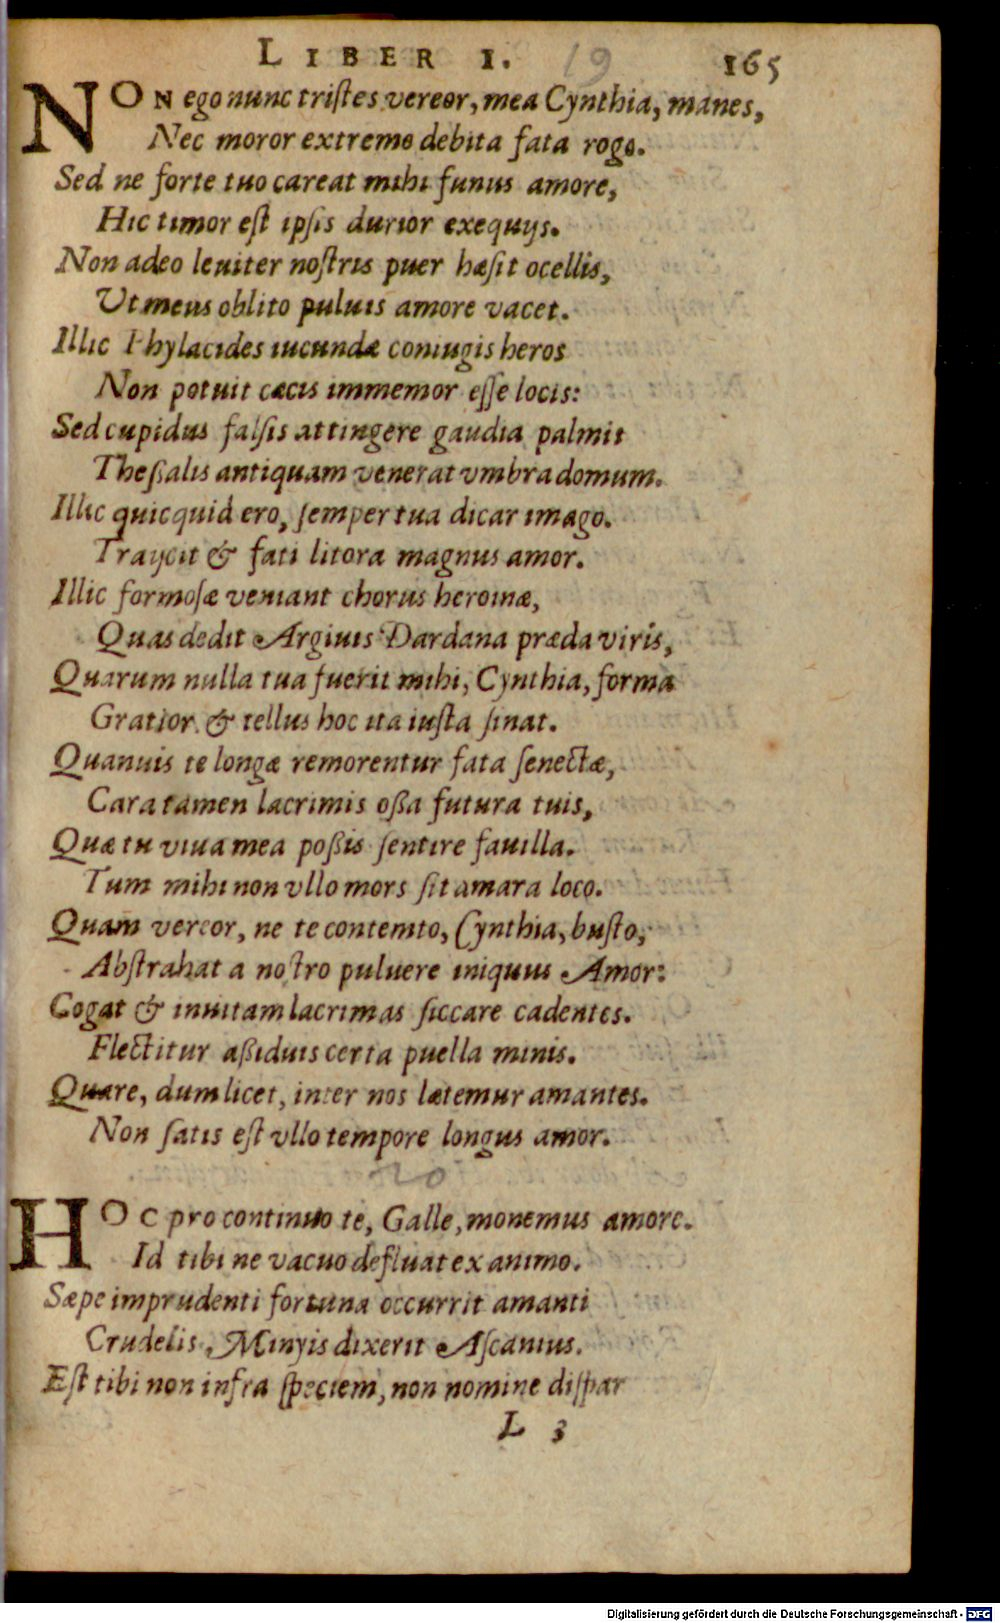 LIBER I. 19 165
NON ego nunc tristes vereor, mea Cynthia, manes,
Nec moror extremo debita fata rogo.
Sed ne forte tuo careat mihi funus amore,
Hic timor est ipsis durior exequijs.
Non adeo leuiter nostris puer hæsit ocellis,
Ut meus oblito puluis amore vacet.
Illic Phylacides iucundæ coniugis heros
Non potuit cæcis immemor esse locis:
Sed cupidus falsis attingere gaudia palmis
Theßalis antiquam venerat vmbra domum.
Illic quicquid ero, semper tua dicar imago.
Traijcit & fati litora magnus amor.
Illic formosæ veniant chorus heroinæ,
Quas dedit Argiuis Dardana præda viris,
Quarum nulla tua fuerit mihi, Cynthia, forma
Gratior. & tellus hoc ita iusta sinat.
Quanuis te longæ remorentur fata senectæ,
Cara tamen lacrimis oßa futura tuis,
Quæ tu viua mea poßis sentire fauilla.
Tum mihi non vllo mors sit amara loco.
Quam vereor, ne te contemto, Cynthia, busto,
Abstrahat a nostro puluere iniquus Amor:
Cogat & inuitam lacrimas siccare cadentes.
Flectitur aßiduis certa puella minis.
Quare, dum licet, inter nos lætemur amantes.
Non satis est vllo tempore longus amor.
20
HOC pro continuo te, Galle, monemus amore.
Id tibi ne vacuo defluat ex animo.
Sæpe imprudenti fortuna occurrit amanti
Crudelis, Minyis dixerit Ascanius.
Est tibi non infra speciem, non nomine dispar
L 3
Digitalisierung gefördert durch die Deutsche Forschungsgemeinschaft - DFG